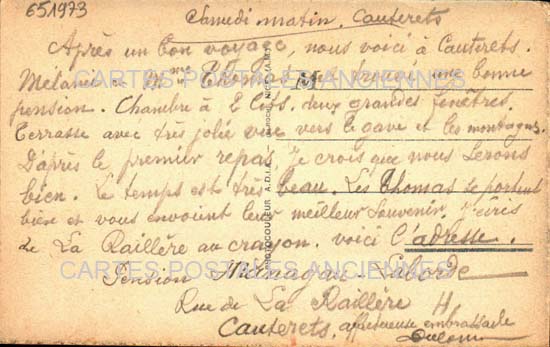 651973
Samedi matin. Cauterets
Après un bon voyage, nous voici à Cauterets.
Mélanie et Mme Thomas ont trouvé une bonne
pension. Chambre à 2 lits. deux grandes fenêtres.
Terrasse avec très jolie vue vers le gave et les montagnes.
D'après le premier repas, je crois que nous serons
bien. Le temps est très beau. Les Thomas se portent
bien et vous envoient leur meilleur souvenir. J'écris
de La Raillère au crayon. voici l'adresse.
Pension Laborde
Rue de La Raillère 4
Cauterets, affectueuse embrassade
CARTES POSTALES ANCIENNES
CARTES POSTALES ANCIENNES